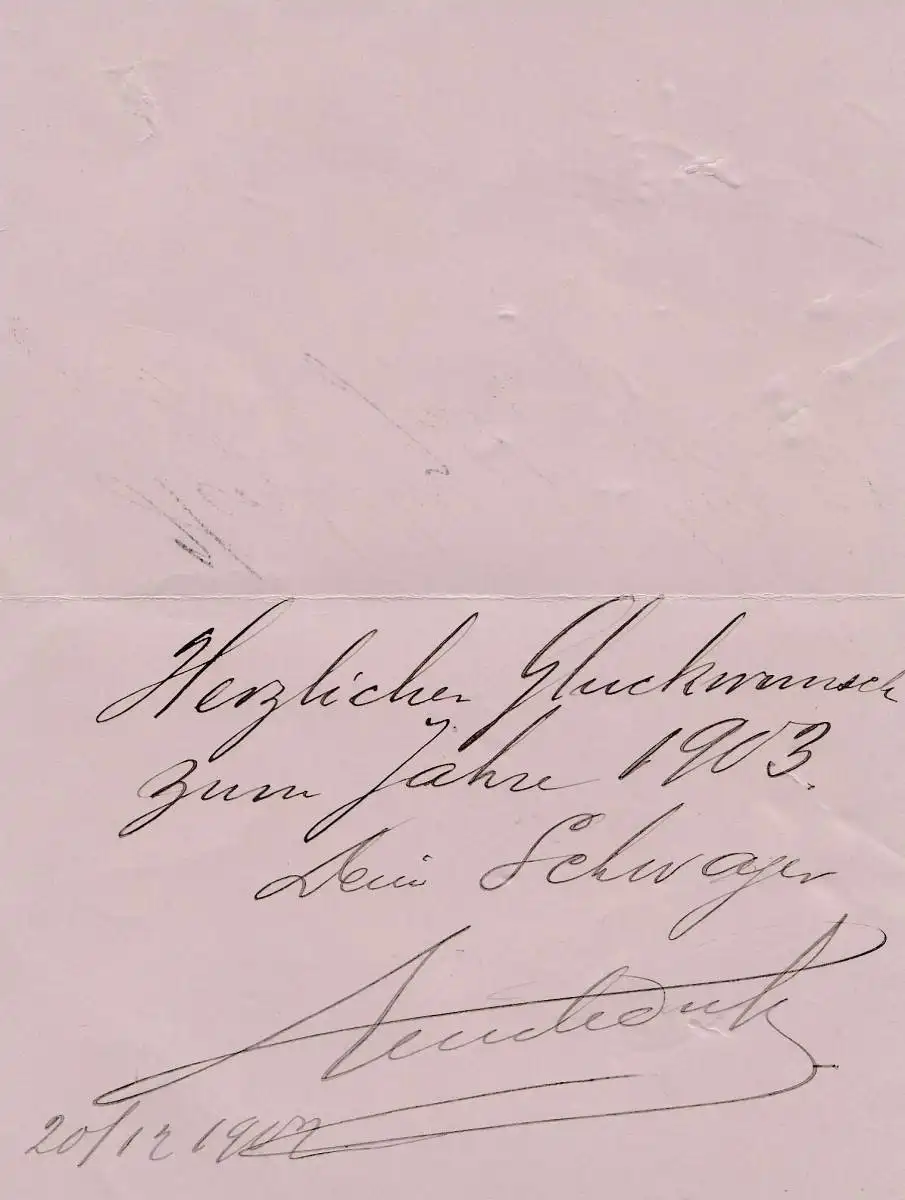 Herzlichen Gluckwunsch
zum Jahre 1903.
Dein Schwager
20/12 1902